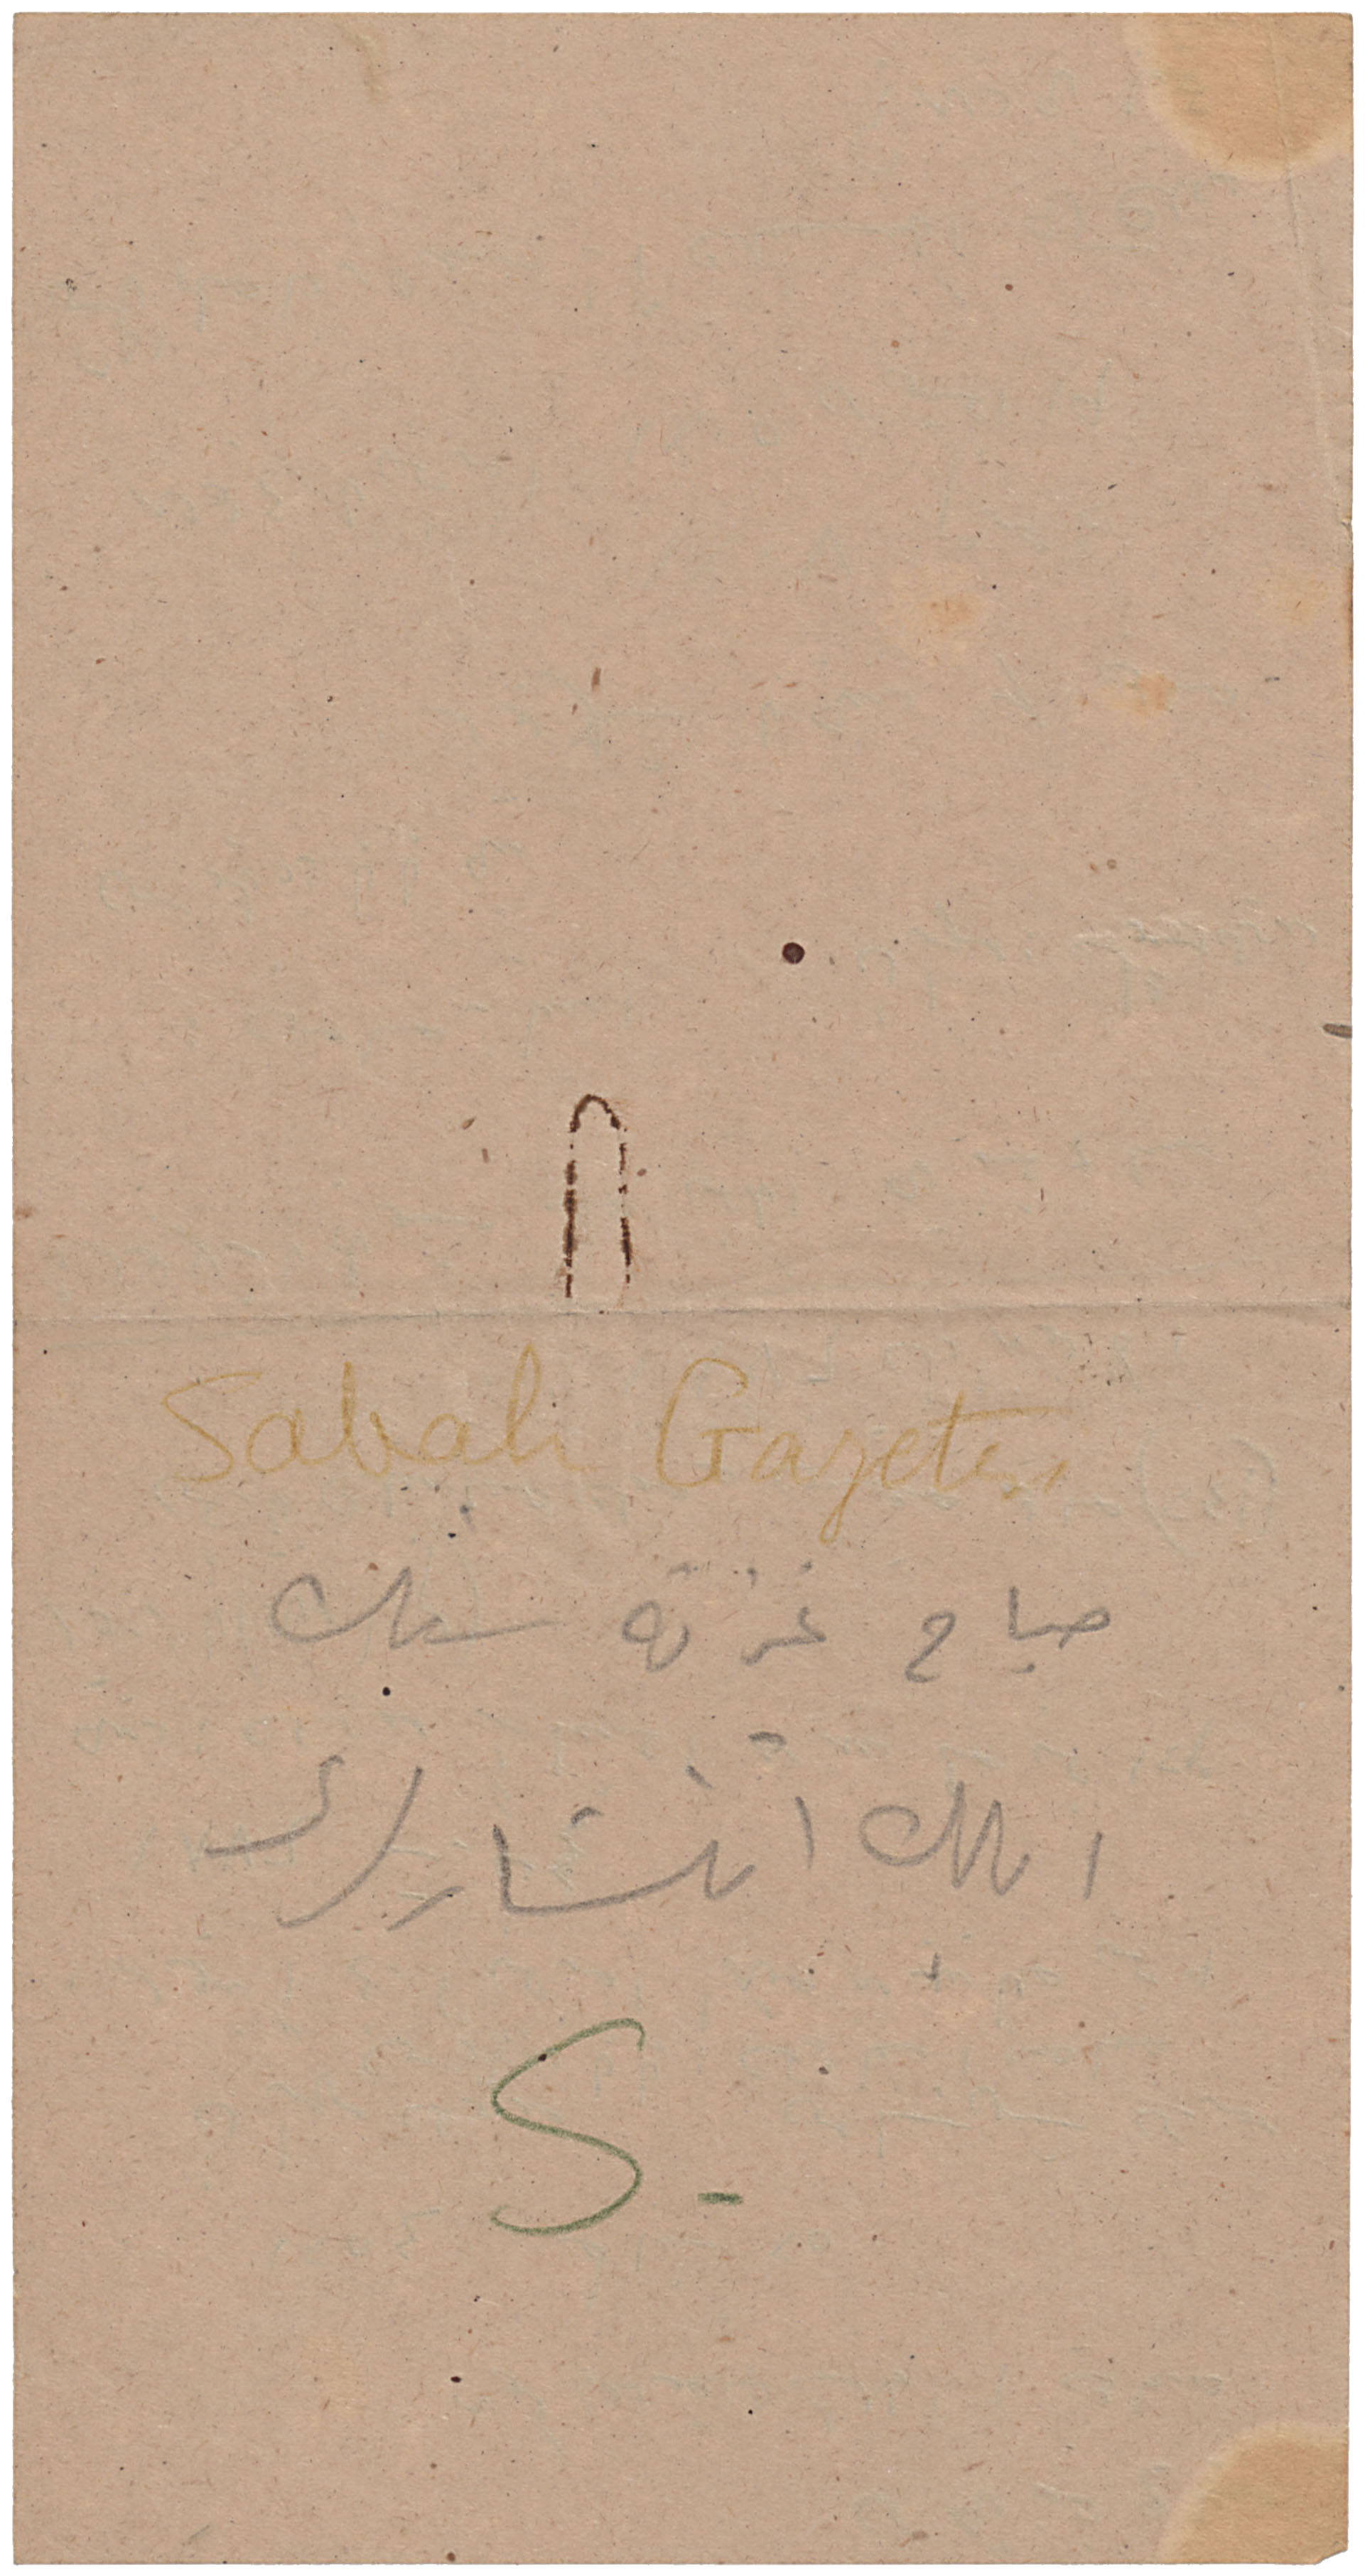 Sabah Gazetesi
صباح غزته سنك
ايلك انتشارى
S -